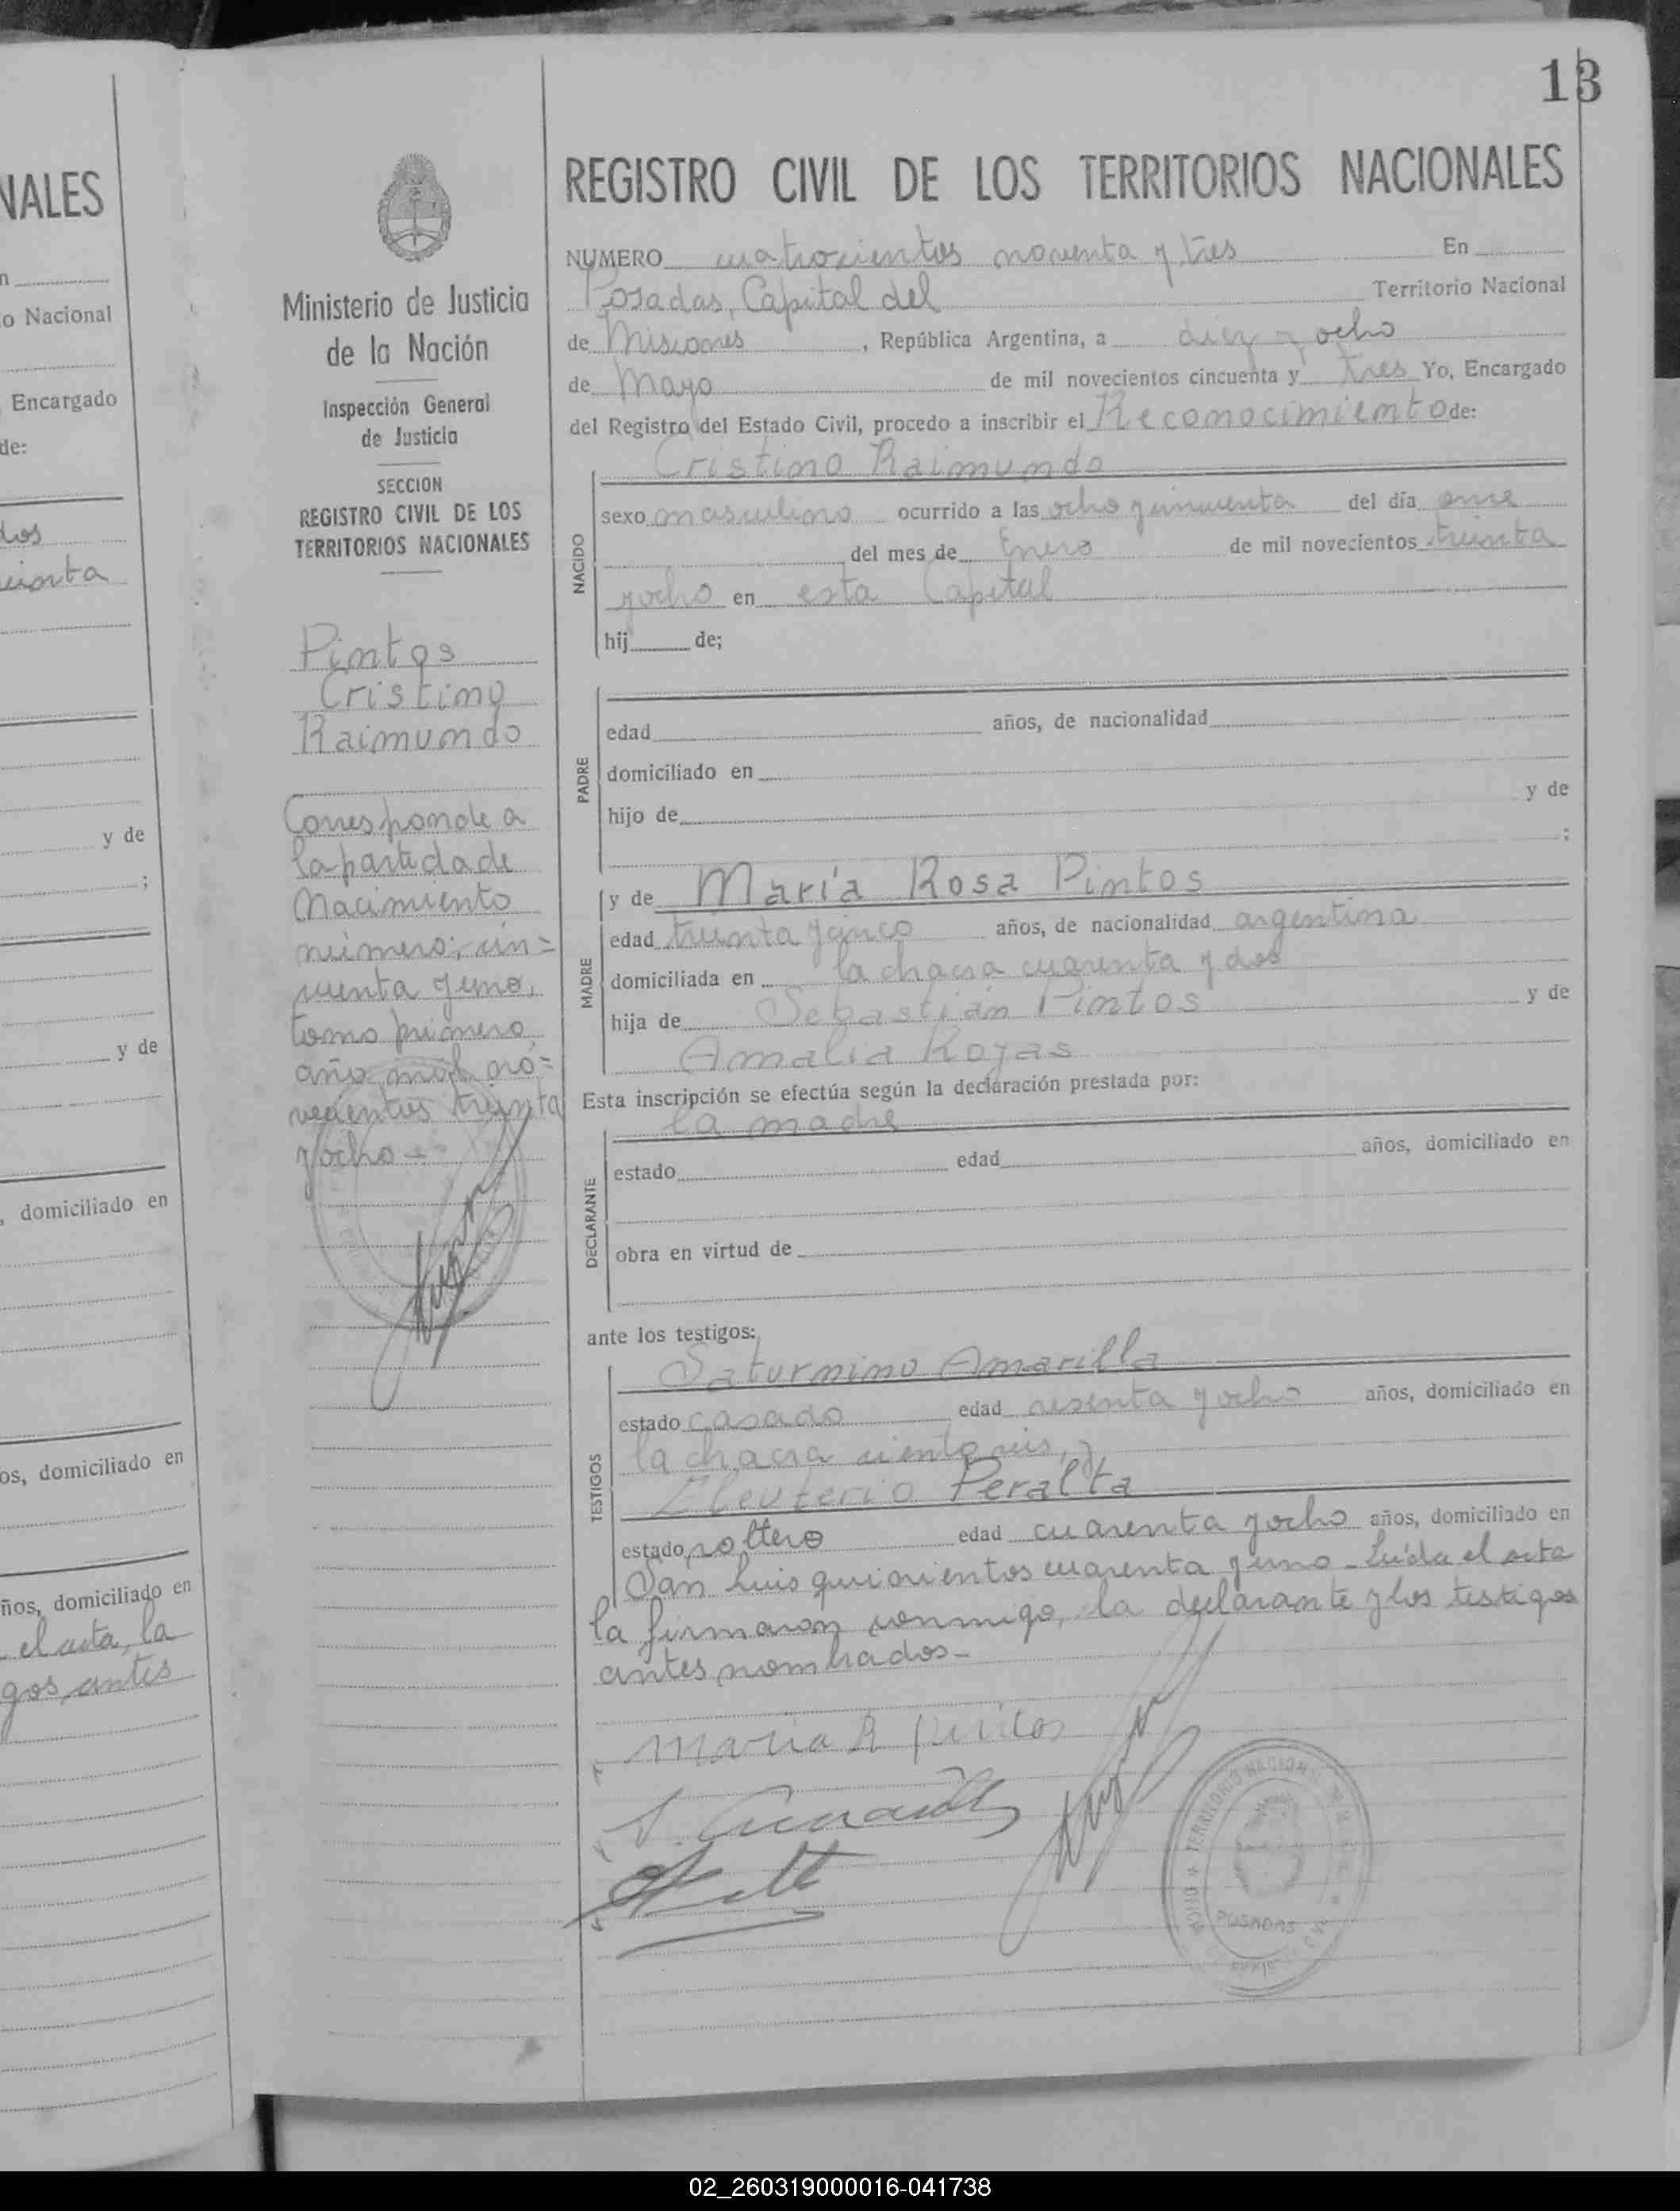 13
NALES
n
o Nacional
Encargado
de:
dos
y de
;
y de
, domiciliado en
os, domiciliado en
ños, domiciliado en
el acta, la
gos, antes
Ministerio de Justicia
de la Nación
Inspección General
de Justicia
SECCION
REGISTRO CIVIL DE LOS
TERRITORIOS NACIONALES
Pintos
Cristino
Raimundo
Corresponde a
la partida de
Nacimiento
número; cin=
cuenta y uno,
tomo primero
año mil no=
vecientos treinta
y ocho -
REGISTRO CIVIL DE LOS TERRITORIOS NACIONALES
NUMERO cuatrocientos noventa y tres En
Posadas, Capital del Territorio Nacional
de Misiones, República Argentina, a diez y ocho
de Mayo de mil novecientos cincuenta y tres Yo, Encargado
del Registro del Estado Civil, procedo a inscribir el Reconocimiento de:
Cristino Raimundo
NACIDO
sexo masculino ocurrido a las ocho y cincuenta del día once
del mes de Enero de mil novecientos treinta
y ocho en esta Capital
hij de;
PADRE
edad años, de nacionalidad
domiciliado en
hijo de y de
;
MADRE
y de María Rosa Pintos
edad treinta y cinco años, de nacionalidad argentina
domiciliada en la chacra cuarenta y dos
hija de Sebastián Pintos y de
Amalia Rojas
Esta inscripción se efectúa según la declaración prestada por:
la madre
DECLARANTE
estado edad años, domiciliado en
obra en virtud de
ante los testigos:
Saturnino Amarilla
TESTIGOS
estado casado edad sesenta y ocho años, domiciliado en
la chacra ciento seis, y
Eleuterio Peralta
estado soltero edad cuarenta y ocho años, domiciliado en
San Luis quinientos cuarenta y uno - Leída el acta
la firmaron conmigo, la declarante y los testigos
antes nombrados -
Maria R Pintos
TERRITORIO NACIONAL
POSADAS
02_260319000016-041738